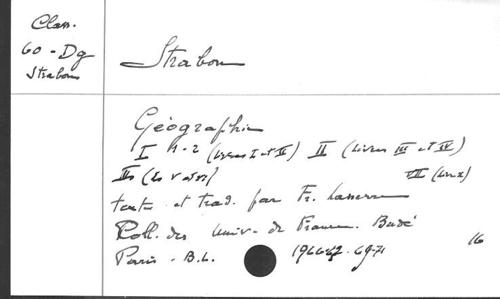 Class.
60 - Dg
Strabon
Strabon
Géographie
I 1-2 (Livres I et II) II (Livres III et IV)
III (Ls V et VI) VII (Livre X)
texte et trad. par Fr. Lasserre
Coll. des Univ. de France. Budé
Paris - B.L. 69-71
16